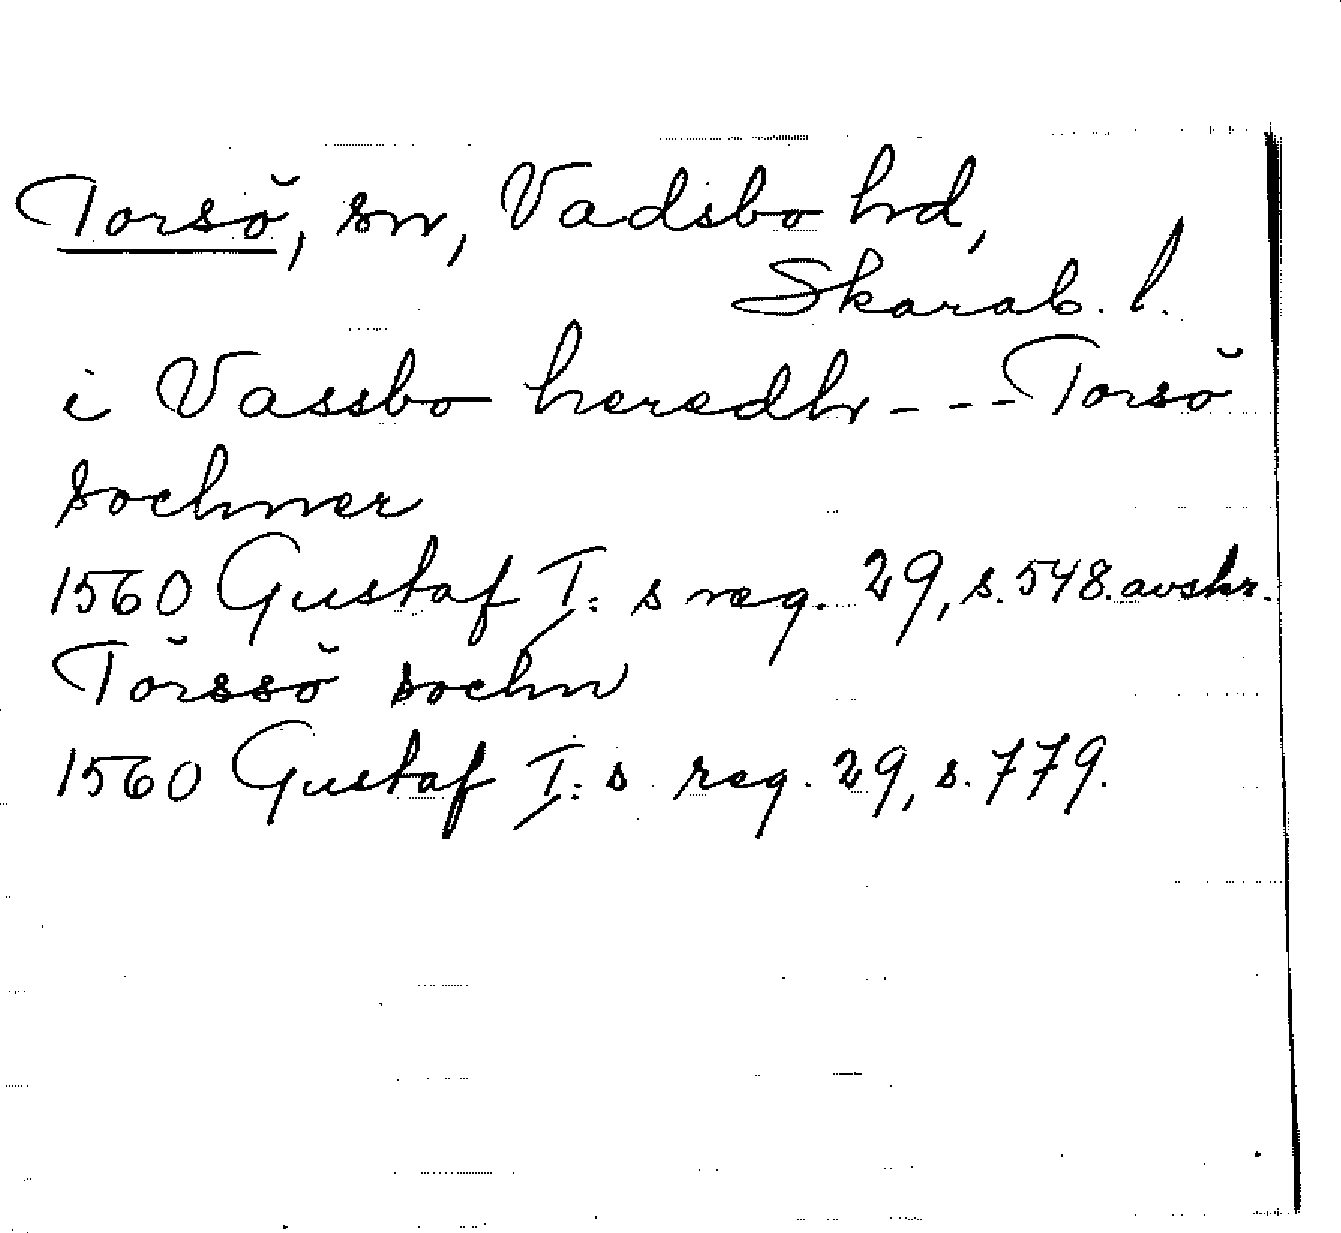 Torsö, sn, Vadsbo hd,
Skarab. l.
i Vassbo heredh - - - Torsö
sochner
1560 Gustaf I:s reg. 29, s. 548. avskr.
Törssö sochn
1560 Gustaf I:s reg. 29, s. 779.